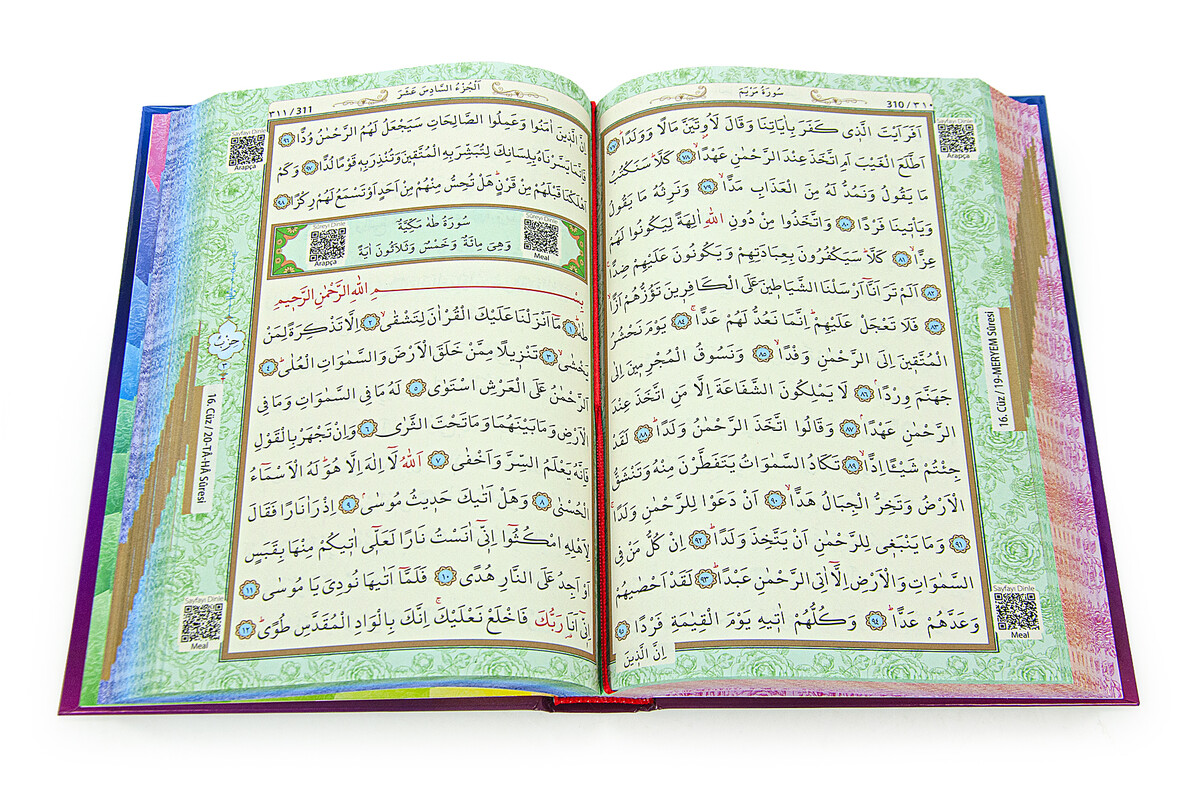 سُورَةُ مَرْيَمَ
310 / ٣١٠
اَفَرَاَيْتَ الَّذ۪ي كَفَرَ بِاٰيَاتِنَا وَقَالَ لَاُو۫تَيَنَّ مَالًا وَوَلَدًاۜ ٧٧
اَطَّلَعَ الْغَيْبَ اَمِ اتَّخَذَ عِنْدَ الرَّحْمٰنِ عَهْدًاۙ ٧٨ كَلَّاۜ سَنَكْتُبُ
مَا يَقُولُ وَنَمُدُّ لَهُ مِنَ الْعَذَابِ مَدًّاۙ ٧٩ وَنَرِثُهُ مَا يَقُولُ
وَيَأْت۪ينَا فَرْدًا ٨٠ وَاتَّخَذُوا مِنْ دُونِ اللّٰهِ اٰلِهَةً لِيَكُونُوا لَهُمْ
عِزًّاۙ ٨١ كَلَّاۜ سَيَكْفُرُونَ بِعِبَادَتِهِمْ وَيَكُونُونَ عَلَيْهِمْ ضِدًّا
٨٢ اَلَمْ تَرَ اَنَّٓا اَرْسَلْنَا الشَّيَاط۪ينَ عَلَى الْكَافِر۪ينَ تَؤُزُّهُمْ اَزًّاۙ
٨٣ فَلَا تَعْجَلْ عَلَيْهِمْۜ اِنَّمَا نَعُدُّ لَهُمْ عَدًّاۚ ٨٤ يَوْمَ نَحْشُرُ
الْمُتَّق۪ينَ اِلَى الرَّحْمٰنِ وَفْدًاۙ ٨٥ وَنَسُوقُ الْمُجْرِم۪ينَ اِلٰى
جَهَنَّمَ وِرْدًاۢ ٨٦ لَا يَمْلِكُونَ الشَّفَاعَةَ اِلَّا مَنِ اتَّخَذَ عِنْدَ
الرَّحْمٰنِ عَهْدًاۢ ٨٧ وَقَالُوا اتَّخَذَ الرَّحْمٰنُ وَلَدًاۜ ٨٨ لَقَدْ
جِئْتُمْ شَيْـًٔا اِدًّاۙ ٨٩ تَكَادُ السَّمٰوَاتُ يَتَفَطَّرْنَ مِنْهُ وَتَنْشَقُّ
الْاَرْضُ وَتَخِرُّ الْجِبَالُ هَدًّاۙ ٩٠ اَنْ دَعَوْا لِلرَّحْمٰنِ وَلَدًاۚ
٩١ وَمَا يَنْبَغ۪ي لِلرَّحْمٰنِ اَنْ يَتَّخِذَ وَلَدًاۜ ٩٢ اِنْ كُلُّ مَنْ فِي
السَّمٰوَاتِ وَالْاَرْضِ اِلَّٓا اٰتِي الرَّحْمٰنِ عَبْدًاۜ ٩٣ لَقَدْ اَحْصٰيهُمْ
وَعَدَّهُمْ عَدًّاۜ ٩٤ وَكُلُّهُمْ اٰت۪يهِ يَوْمَ الْقِيٰمَةِ فَرْدًا ٩٥
اِنَّ الَّذ۪ينَ
Sayfayı Dinle
Arapça
16. Cüz / 19-MERYEM Sûresi
Sayfayı Dinle
Meal
اَلْجُزْءُ السَّادِسَ عَشَرَ
٣١١ / 311
اِنَّ الَّذ۪ينَ اٰمَنُوا وَعَمِلُوا الصَّالِحَاتِ سَيَجْعَلُ لَهُمُ الرَّحْمٰنُ وُدًّا ٩٦
فَاِنَّمَا يَسَّرْنَاهُ بِلِسَانِكَ لِتُبَشِّرَ بِهِ الْمُتَّق۪ينَ وَتُنْذِرَ بِه۪ قَوْمًا لُدًّا ٩٧ وَكَمْ
اَهْلَكْنَا قَبْلَهُمْ مِنْ قَرْنٍۜ هَلْ تُحِسُّ مِنْهُمْ مِنْ اَحَدٍ اَوْ تَسْمَعُ لَهُمْ رِكْزًا ٩٨
سُورَةُ طٰهٰ مَكِّيَّةٌ
وَهِيَ مِائَةٌ وَخَمْسٌ وَثَلَاثُونَ اٰيَةً
Sûreyi Dinle
Meal
Sûreyi Dinle
Arapça
بِسْمِ اللّٰهِ الرَّحْمٰنِ الرَّح۪يمِ
طٰهٰ ١ مَٓا اَنْزَلْنَا عَلَيْكَ الْقُرْاٰنَ لِتَشْقٰىۙ ٢ اِلَّا تَذْكِرَةً لِمَنْ
يَخْشٰىۙ ٣ تَنْز۪يلًا مِمَّنْ خَلَقَ الْاَرْضَ وَالسَّمٰوَاتِ الْعُلٰىۜ ٤
اَلرَّحْمٰنُ عَلَى الْعَرْشِ اسْتَوٰى ٥ لَهُ مَا فِي السَّمٰوَاتِ وَمَا فِي
الْاَرْضِ وَمَا بَيْنَهُمَا وَمَا تَحْتَ الثَّرٰى ٦ وَاِنْ تَجْهَرْ بِالْقَوْلِ
فَاِنَّهُ يَعْلَمُ السِّرَّ وَاَخْفٰى ٧ اَللّٰهُ لَٓا اِلٰهَ اِلَّا هُوَۜ لَهُ الْاَسْمَٓاءُ
الْحُسْنٰى ٨ وَهَلْ اَتٰيكَ حَد۪يثُ مُوسٰىۢ ٩ اِذْ رَاٰ نَارًا فَقَالَ
لِاَهْلِهِ امْكُثُٓوا اِنّ۪ٓي اٰنَسْتُ نَارًا لَعَلّ۪ٓي اٰت۪يكُمْ مِنْهَا بِقَبَسٍ
اَوْ اَجِدُ عَلَى النَّارِ هُدًى ١٠ فَلَمَّٓا اَتٰيهَا نُودِيَ يَا مُوسٰى ١١
اِنّ۪ٓي اَنَا۬ رَبُّكَ فَاخْلَعْ نَعْلَيْكَۚ اِنَّكَ بِالْوَادِ الْمُقَدَّسِ طُوًىۜ ١٢
Sayfayı Dinle
Arapça
حِزْبُ
٣
16. Cüz / 20-TÂ-HÂ Sûresi
Sayfayı Dinle
Meal